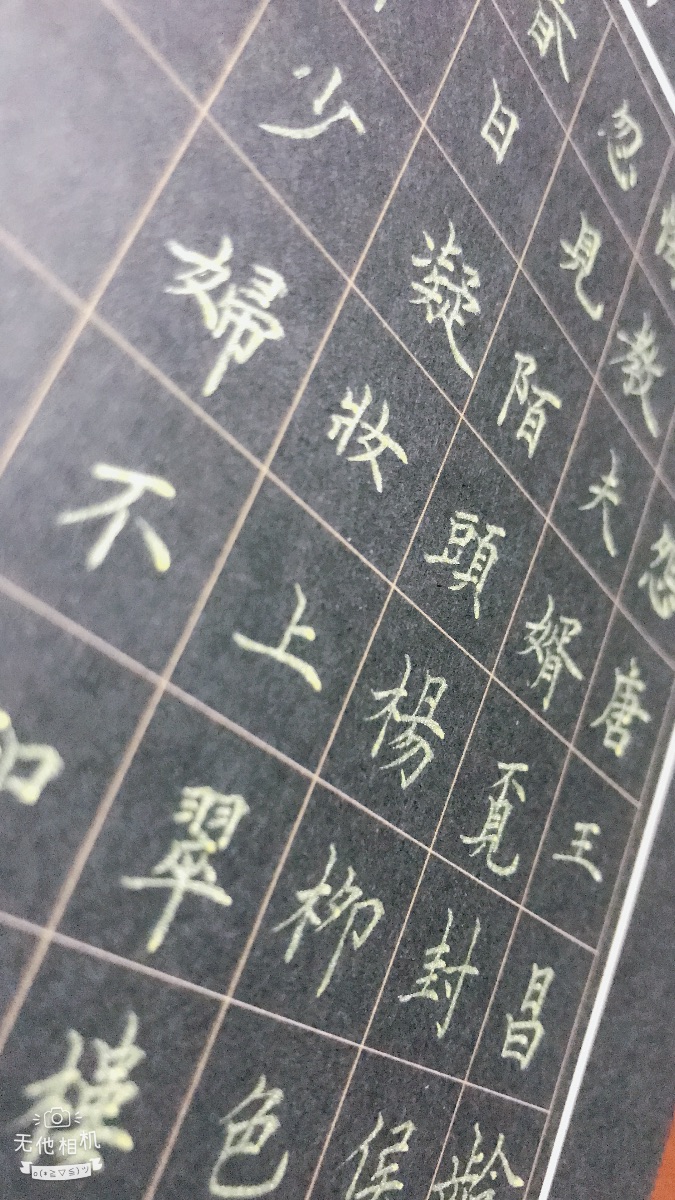 少婦不知
日凝妝上翠樓
忽見陌頭楊柳色
教夫婿覓封侯
怨唐王昌齡
无他相机
o(≧▽≦)ツ